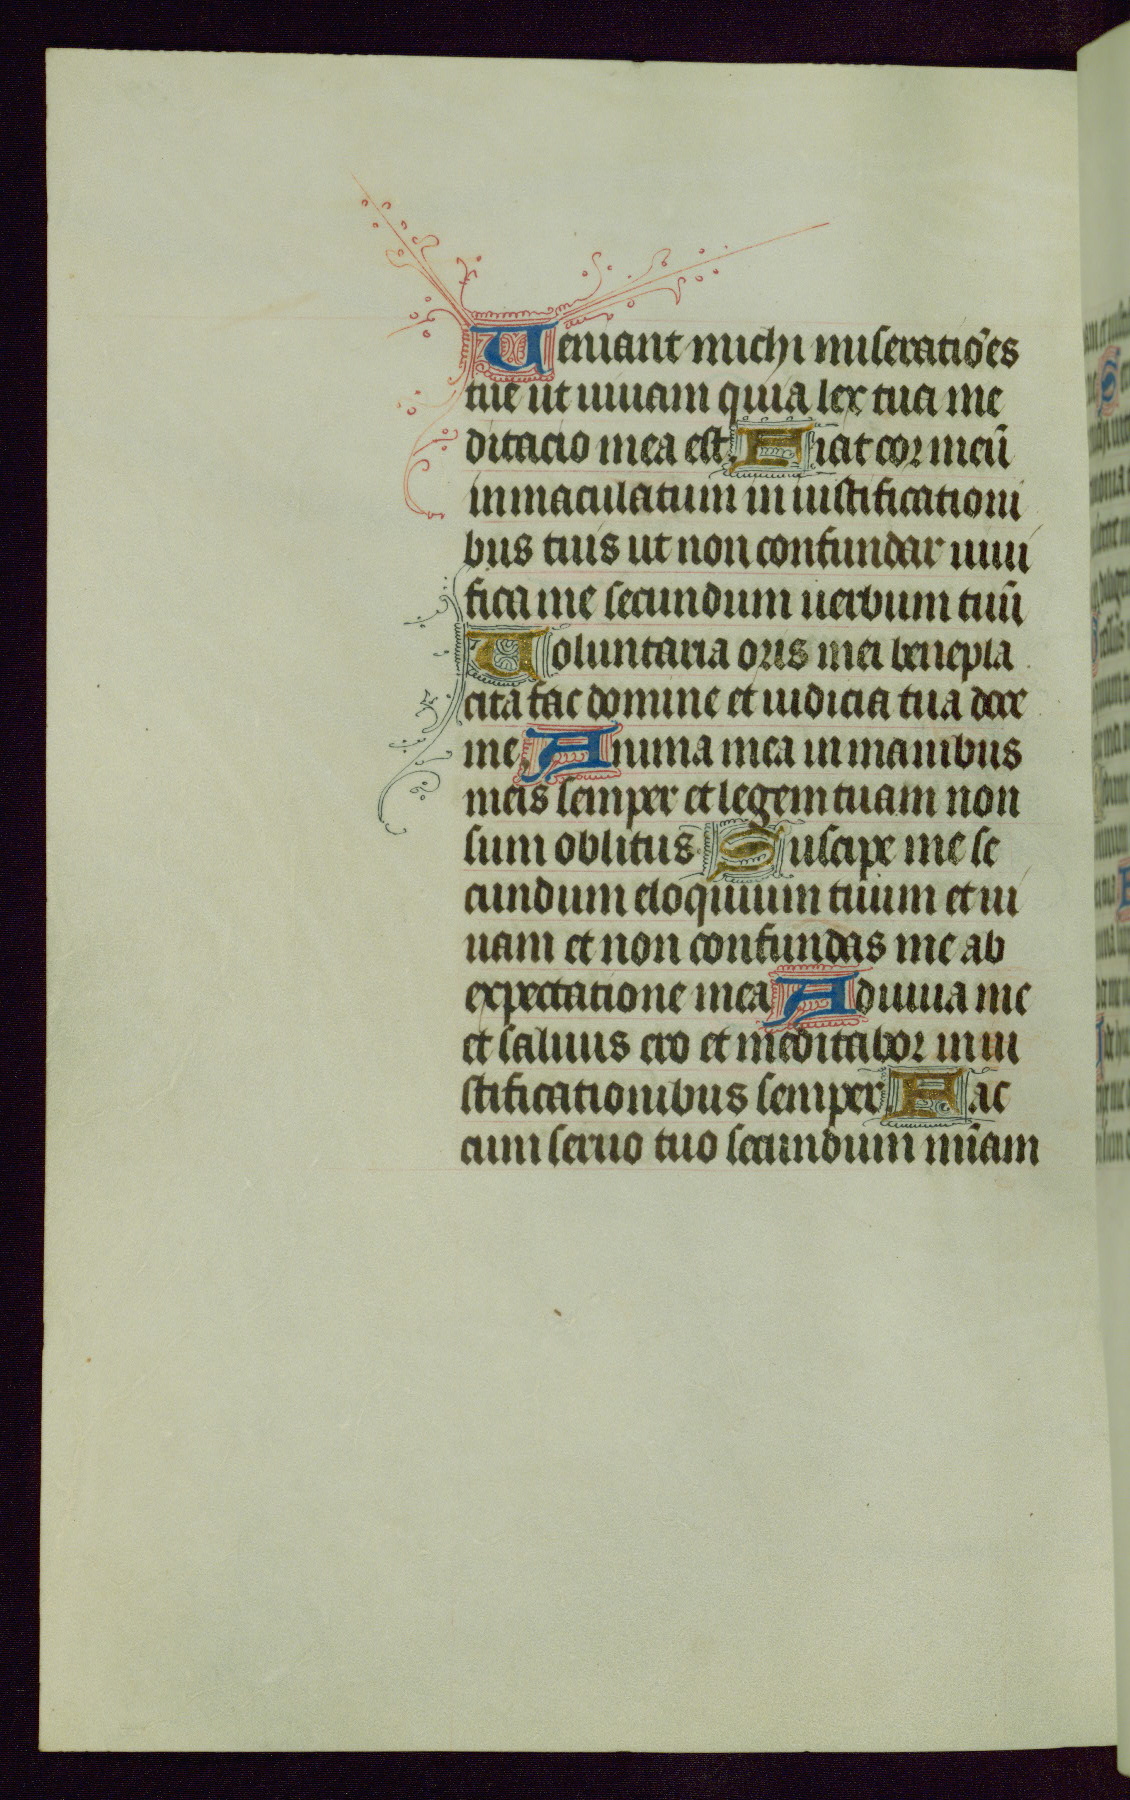 Ueniant michi miseratiões
tue ut uiuam quia lex tua me
ditacio mea est. Fiat cor meũ
inmaculatum in iustificationi
bus tuis ut non confundar uiui
fica me secundum uerbum tuũ
Uoluntaria oris mei benepla
cita fac domine et iudicia tua doce
me. Anima mea in manibus
meis semper et legem tuam non
sum oblitus. Suscipe me se
cundum eloquium tuum et ui
uam et non confundas me ab
expectatione mea Adiuua me
et saluus ero et meditabor in iu
stificationibus semper. Fac
cum seruo tuo secundum mĩam